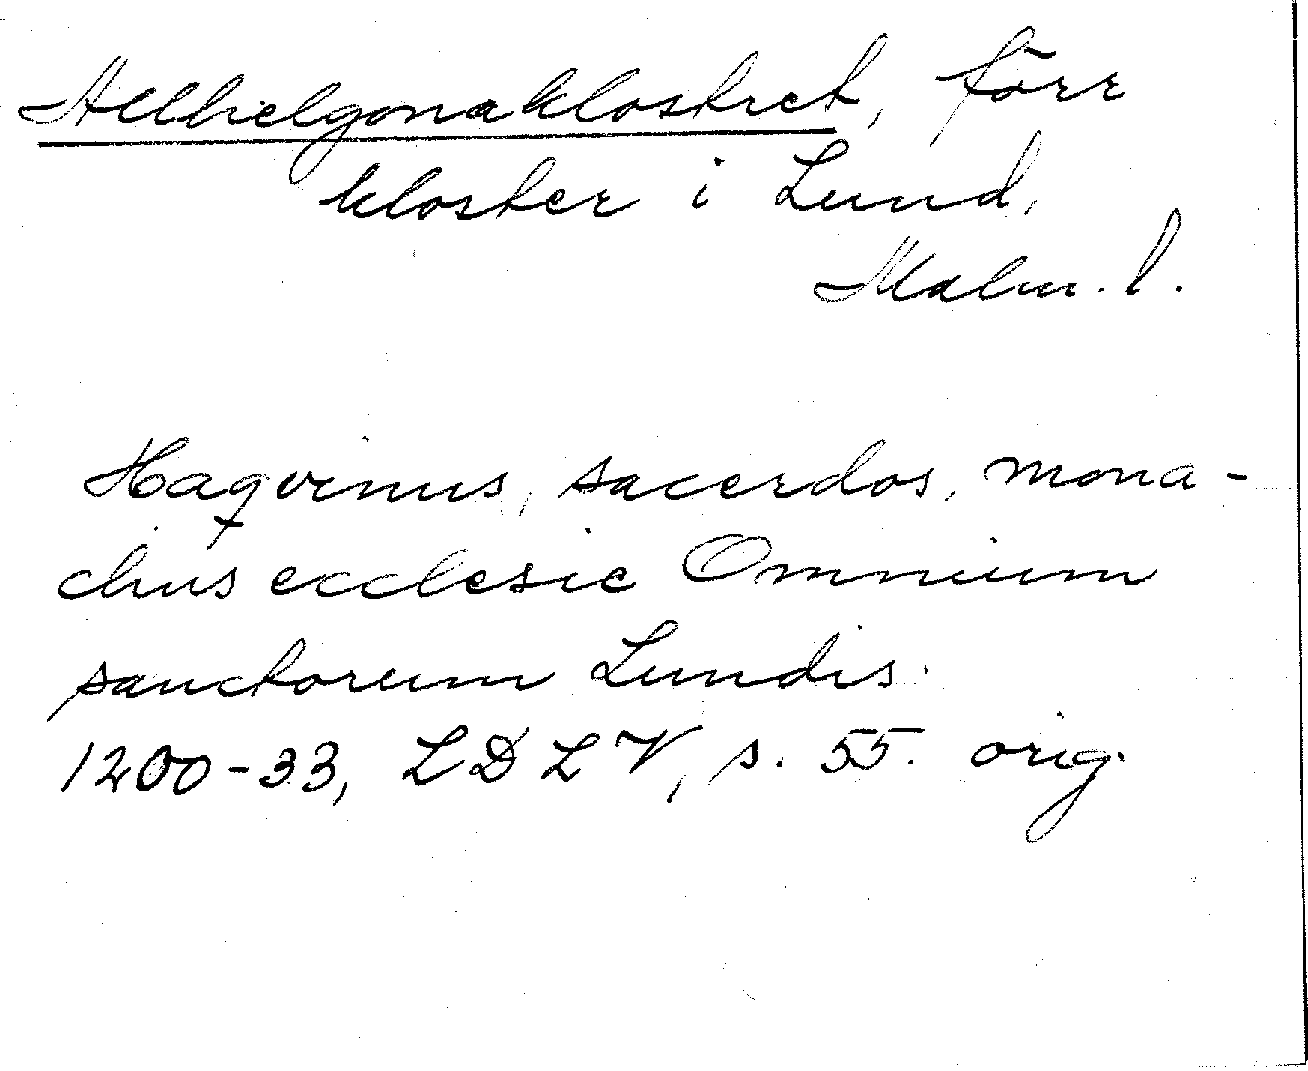 Allhelgonaklostret, förr
kloster i Lund,
Malm. l.
Haqvinus, sacerdos, mona-
chus ecclesie Omnium
sanctorum Lundis.
1200-33, LDLV, s. 55. orig.